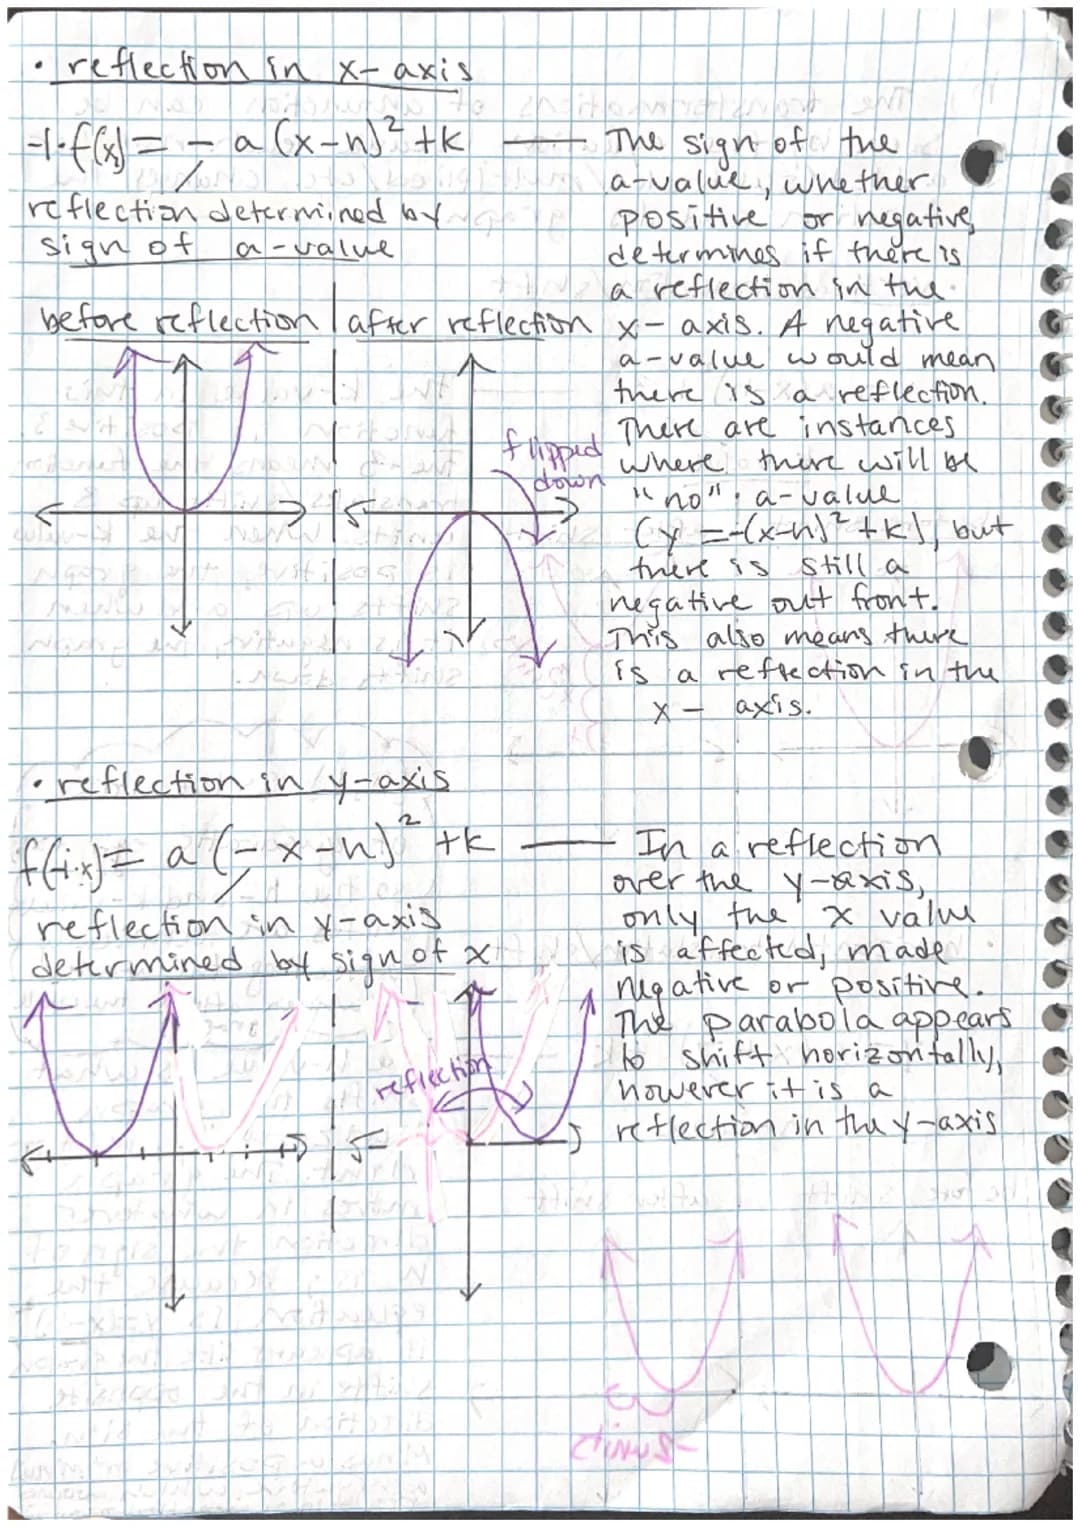 • reflection in x-axis
-1·f(x) = - a (x-h)² +k —
reflection determined by
sign of a-value
The sign of the
a-value, whether
positive or negative,
determines if there is
a reflection in the
x- axis. A negative
a-value would mean
there is a reflection.
There are instances
where there will be
"no" a-value
(y =-(x-h)² +k), but
there is still a
negative out front.
This also means there
is a reflection in the
x - axis.
before reflection | after reflection
flipped
down
• reflection in y-axis
f(-1·x)= a (- x-h)² +k —
reflection in y-axis
determined by sign of x
In a reflection
over the y-axis,
only the x value
is affected, made
negative or positive.
The parabola appears
to shift horizontally,
however it is a
reflection in the y-axis
reflection